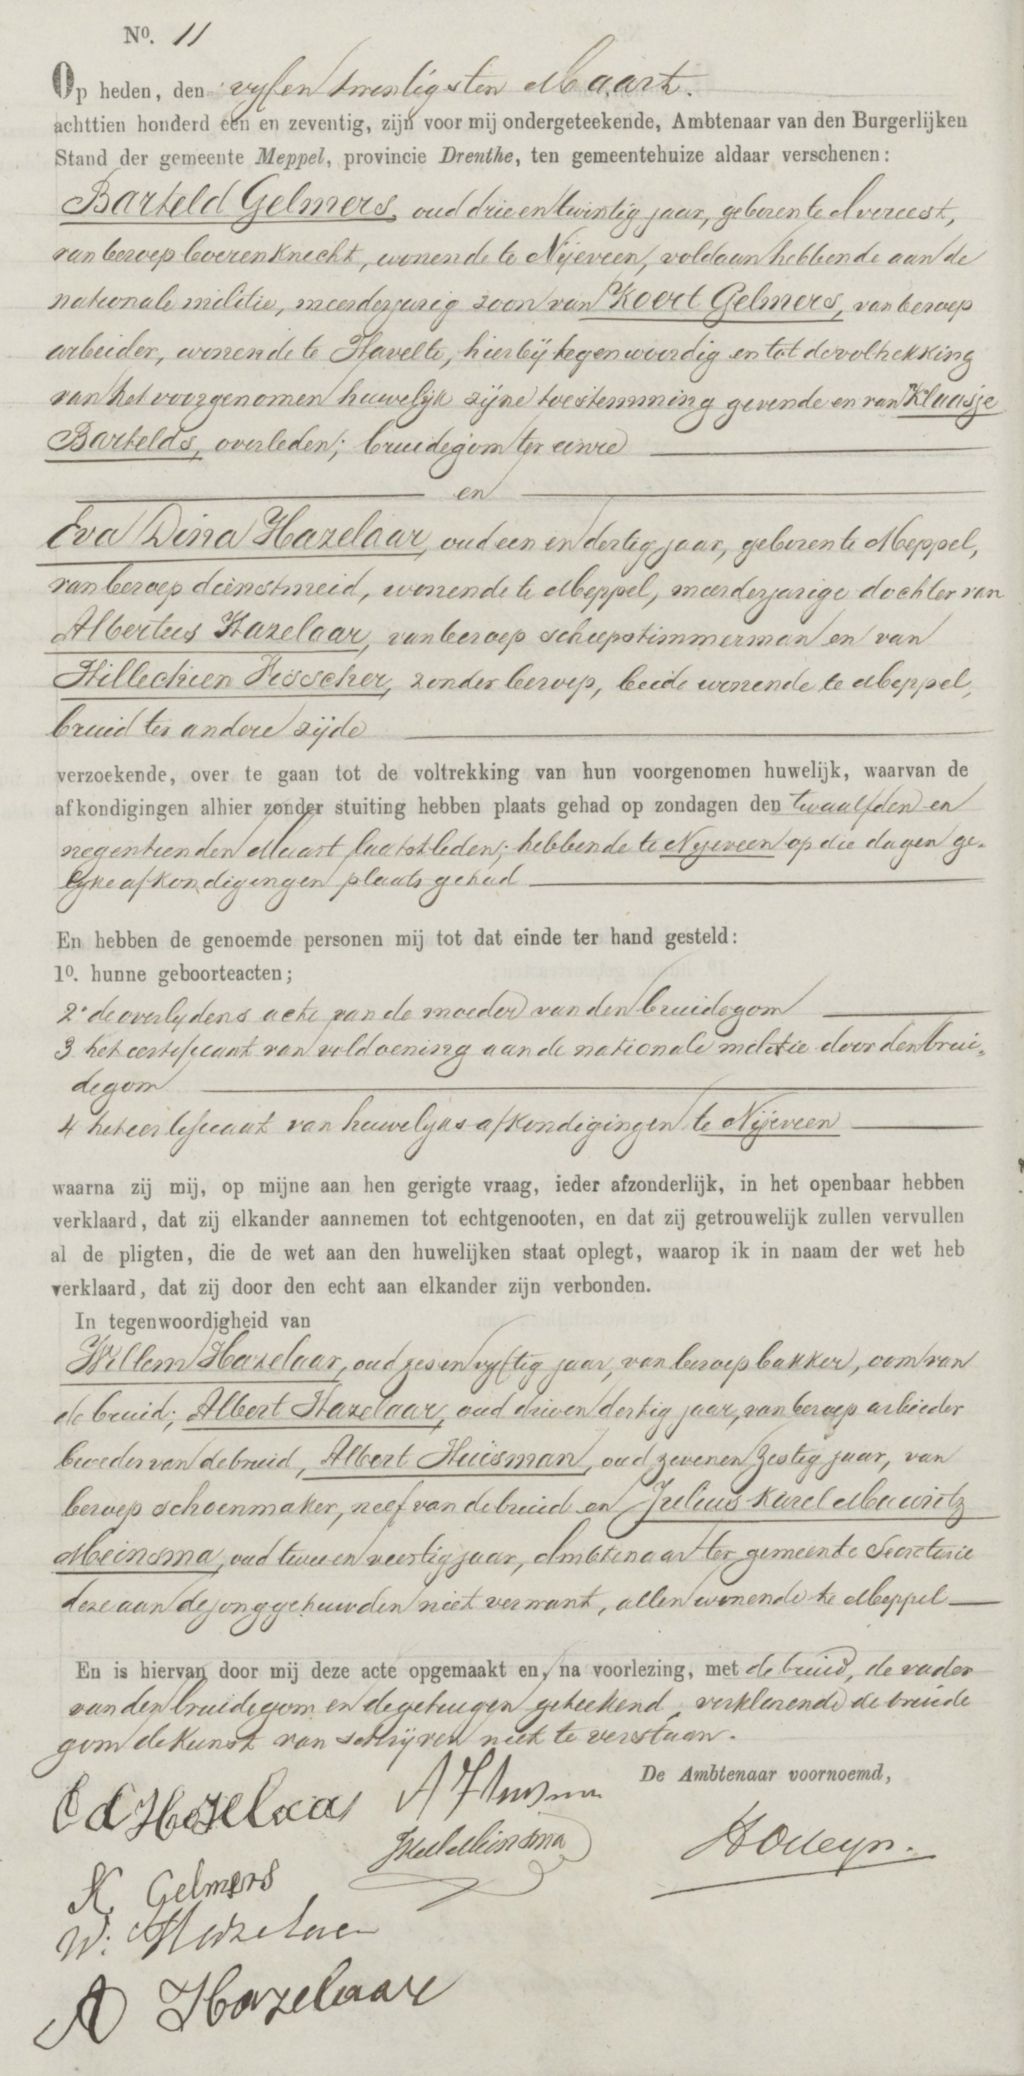 No. 11
Op heden, den vyfen twintigsten Maart.
achttien honderd een en zeventig, zijn voor mij ondergeteekende, Ambtenaar van den Burgerlijken
Stand der gemeente Meppel, provincie Drenthe, ten gemeentehuize aldaar verschenen:
Barteld Gelmers, oud drie en twintig jaar, geboren te Avereest,
van beroep boerenknecht, wonende te Nijeveen, voldaan hebbende aan de
nationale militie, meerderjarig zoon van Koert Gelmers, van beroep
arbeider, wonende te Havelte, hierbij tegenwoordig en tot de voltrekking
van het voorgenomen huwelijk zijne toestemming gevende en van Klaasje
Bartelds, overleden; bruidegom ter eenre
en
Eva Dina Hazelaar, oud een en dertig jaar, geboren te Meppel,
van beroep dienstmeid, wonende te Meppel, meerderjarige dochter van
Albertus Hazelaar, van beroep scheepstimmerman en van
Hillechien Visscher, zonder beroep, beide wonende te Meppel,
bruid ter andere zijde
verzoekende, over te gaan tot de voltrekking van hun voorgenomen huwelijk, waarvan de
afkondigingen alhier zonder stuiting hebben plaats gehad op zondagen den twaalfden en
negentienden Maart laatstleden; hebbende te Nijeveen op die dagen ge-
lyke afkondigingen plaats gehad
En hebben de genoemde personen mij tot dat einde ter hand gesteld:
1o. hunne geboorteacten;
2o de overlydens acte van de moeder van den bruidegom
3 het certificaat van voldoening aan de nationale militie door den brui-
degom
4 het certificaat van huwelijks afkondigingen te Nijeveen
waarna zij mij, op mijne aan hen gerigte vraag, ieder afzonderlijk, in het openbaar hebben
verklaard, dat zij elkander aannemen tot echtgenooten, en dat zij getrouwelijk zullen vervullen
al de pligten, die de wet aan den huwelijken staat oplegt, waarop ik in naam der wet heb
verklaard, dat zij door den echt aan elkander zijn verbonden.
In tegenwoordigheid van
Willem Hazelaar, oud zes en vyftig jaar, van beroep bakker, oom van
de bruid; Albert Hazelaar, oud drie en dertig jaar, van beroep arbieder
broeder van de bruid, Albert Huisman, oud zeven en zestig jaar, van
beroep schoenmaker, neef van de bruid en Julius Karel Mauritz
Meinsma, oud twee en veertig jaar, Ambtenaar ter gemeente Secretarie
deze aan de jonggehuwden niet verwant, allen wonende te Meppel
En is hiervan door mij deze acte opgemaakt en, na voorlezing, met de bruid, de vader
van den bruidegom en de getuigen geteekend, verklarende de bruide
gom de kunst van schrijven niet te verstaan.
De Ambtenaar voornoemd,
E d Hazelaar
A Huisman
K Gelmers
W: Hazelaar
A Hazelaar